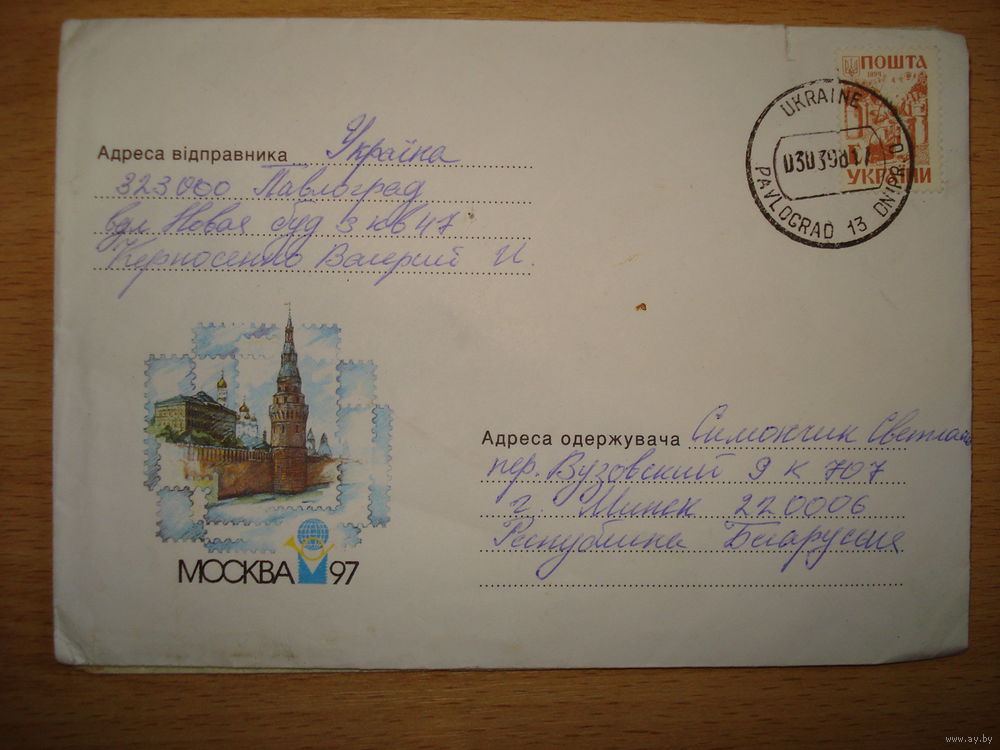 Адреса відправника Україна
323000 Павлоград
вул. Новая 3 кв 47
Керносенко Валерий И.
ПОШТА
УКРАЇНИ
UKRAINE
PAVLOGRAD 13
МОСКВА 97
Адреса одержувача Симончик Светлана
пер. Вузовский 9 к 707
г. Минск 220006
Республика Беларусия
www.ay.by